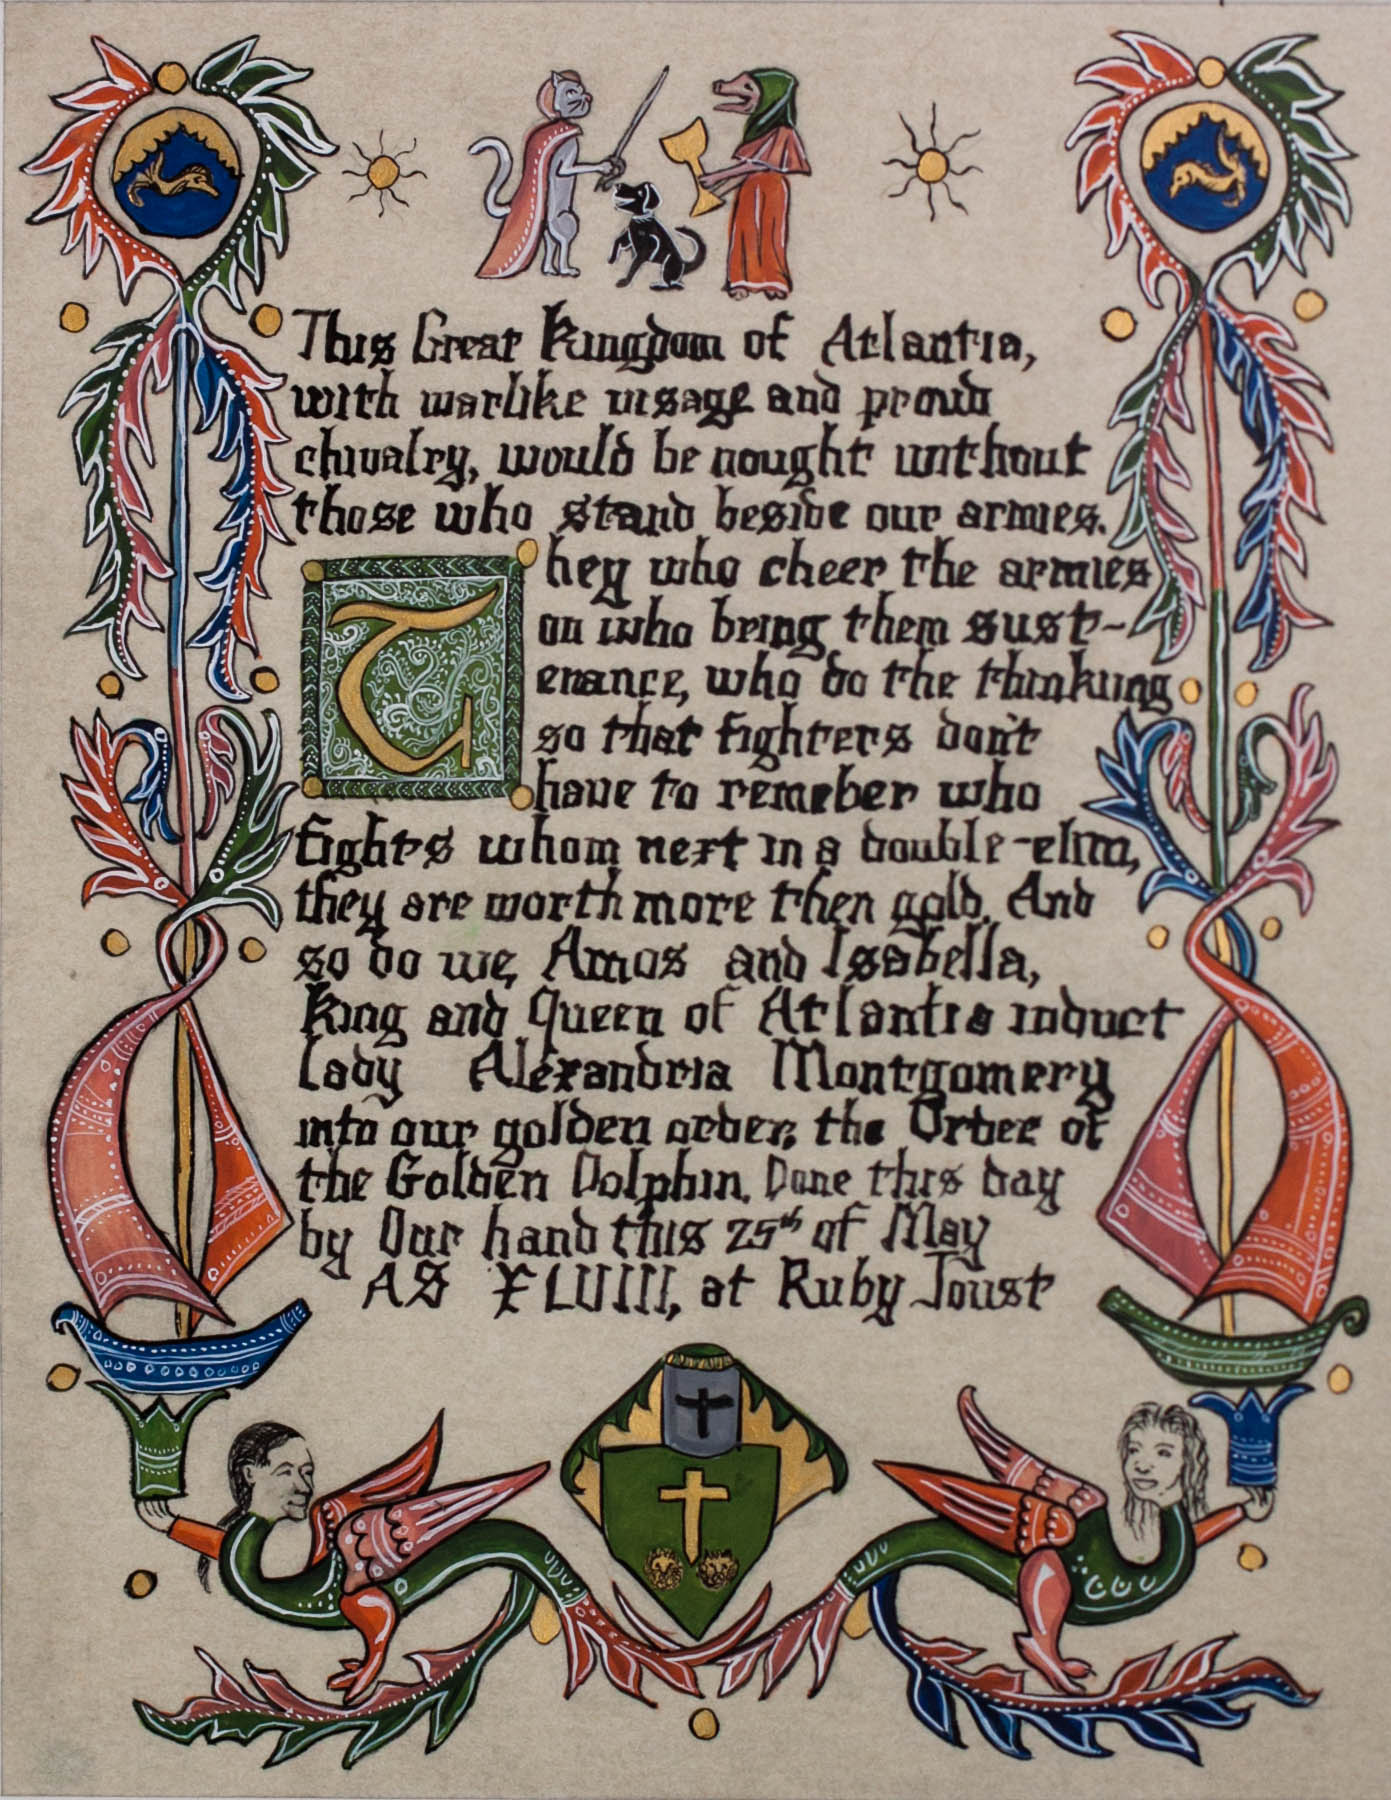 This Great Kingdom of Atlantia,
with warlike visage and proud
chivalry, would be nought without
those who stand beside our armies.
They who cheer the armies
on who bring them sust-
enance, who do the thinkiing
so that fighters don't
have to remeber who
fights whom next in a double-elim,
they are worth more then gold. And
so do we, Amos and Isabella,
King and Queen of Atlantia induct
Lady Alexandria Montgomery
into our golden order, the Order of
the Golden Dolphin. Done this day
by Our hand this 25th of May
AS XLVIII, at Ruby Joust